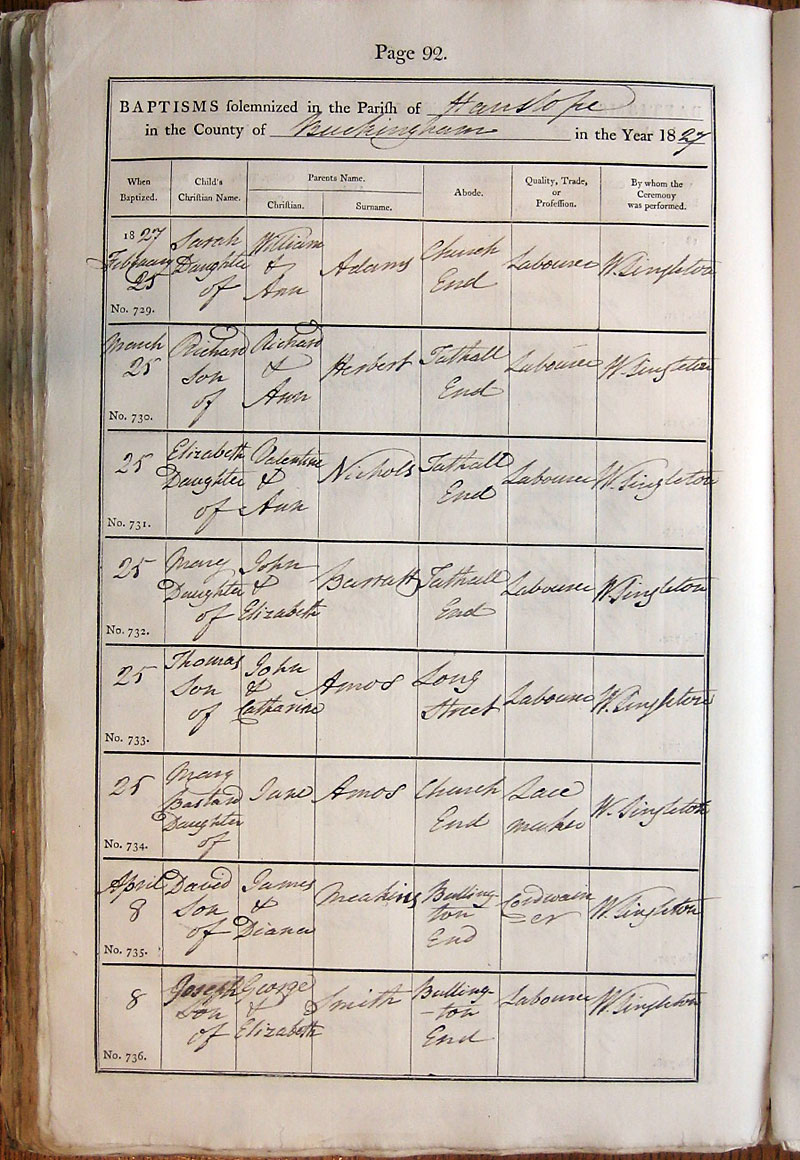 Page 92.
BAPTISMS solemnized in the Parish of Hanslope
in the County of Buckingham in the Year 1827
When Baptized. Child's Christian Name. Parents Name. Abode. Quality, Trade, or Profession. By whom the Ceremony was performed.
Christian. Surname.
1827 Sarah William Church
February Daughter & Adams Labourer W. Singleton
25 of Ann End
No. 729.
March Richard Richard Tathall
25 Son & Herbert Labourer W. Singleton
of Ann End
No. 730.
25 Elizabeth Valentine Nichols Tathall
Daughter & End Labourer W. Singleton
of Ann
No. 731.
25 Mary John Barratt Tathall
Daughter & Labourer W. Singleton
of Elizabeth End
No. 732.
25 Thomas John Amos Long
Son & Labourer W. Singleton
of Catharine Street
No. 733.
25 Mary Jane Amos Church Lace
Bastard End maker W. Singleton
Daughter
of
No. 734.
April David James Meakins Bulling- Cordwain
8 Son & ton =er W. Singleton
of Diana End
No. 735.
8 Joseph George Smith Bulling- Labourer W. Singleton
Son & -ton
of Elizabeth End
No. 736.